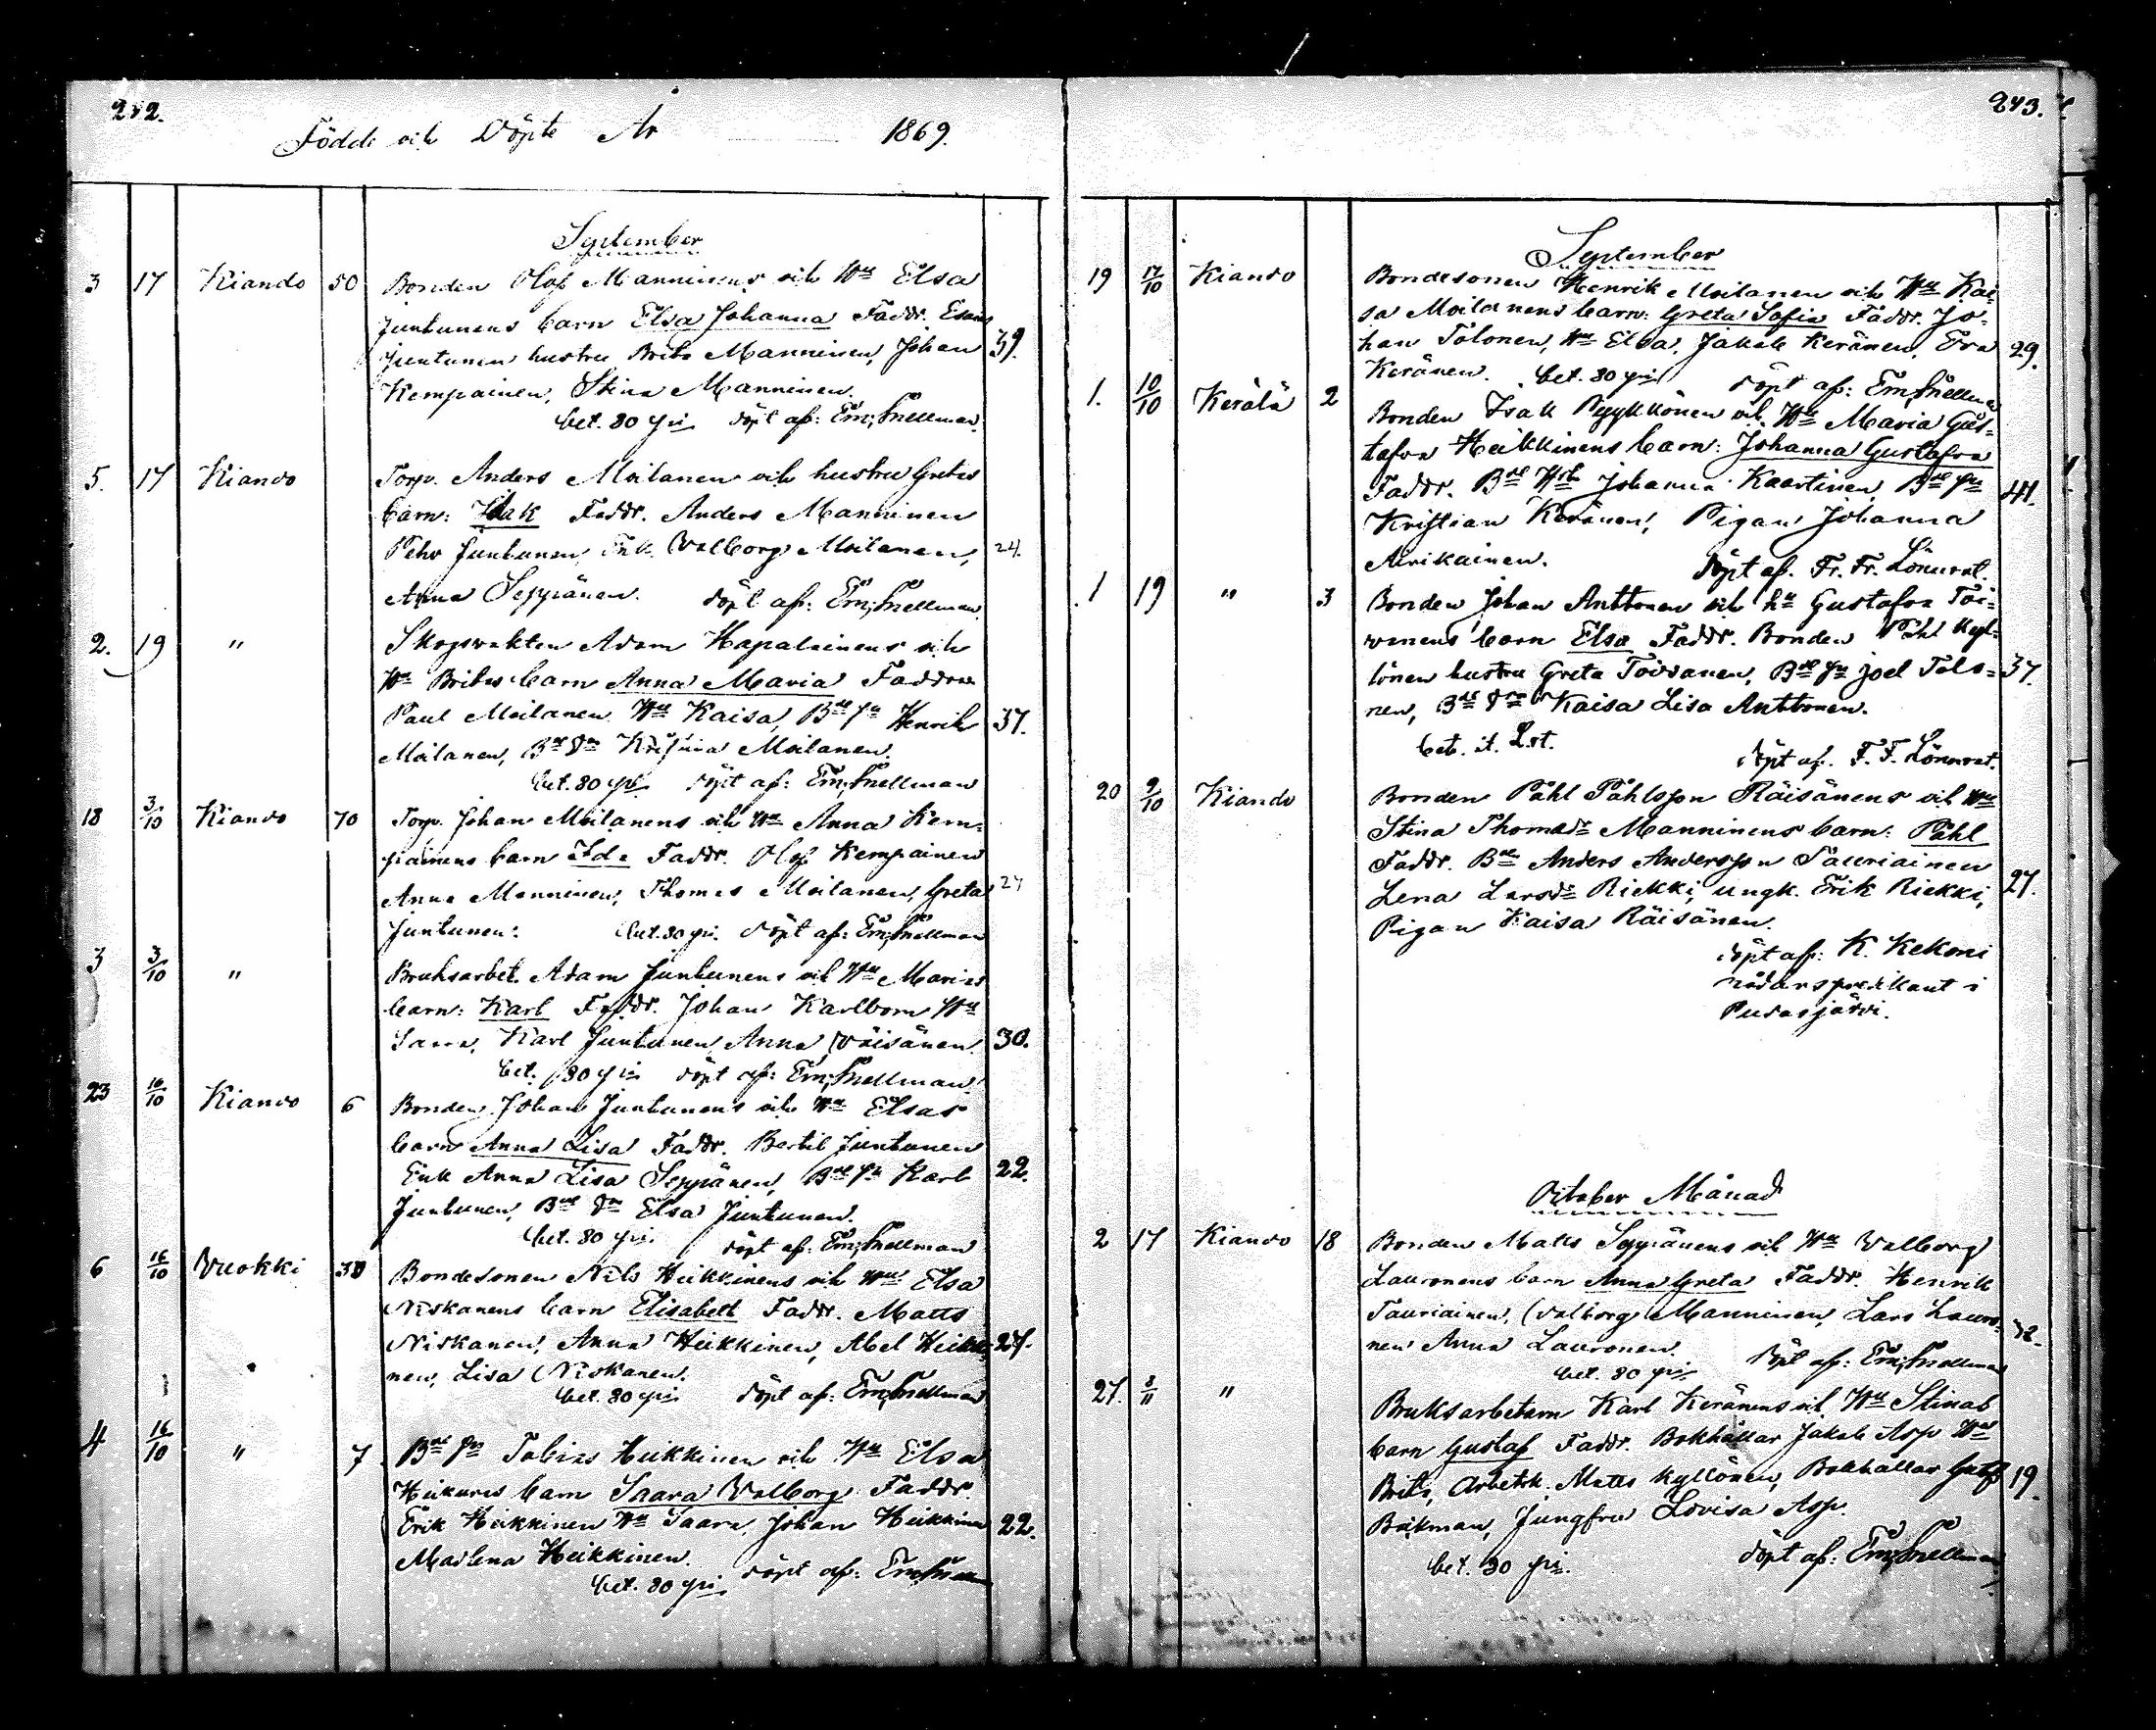 242.
Födde och Döpte År 1869.
September
3 17 Kiando 50 Bonden Olof Manninens och Hu Elsa
Juntunens barn Elsa Johanna Faddr. Esaias
Juntunen hustru Brita Manninen, Johan 39.
Kempainen, Stina Manninen.
bet. 80 pi döpt af: Em; Snellman.
5. 17 Kiando Torp. Anders Moilanen och hustru Gretas
barn: Isak Faddr. Anders Manninen
Pehr Juntunen, Enk. Valborg Moilanen, 24.
Anna Seppänen. döpt af: Em; Snellman
2. 19 " Skogsvakten Adam Hapalainens och
Hu Britas barn Anna Maria Faddrar
Paul Moilanen Hu Kaisa, Bde sn Henrik 37.
Moilanen, Bde dr Kristina Moilanen.
bet. 80 pi döpt af: Em; Snellman
18 3/10 Kiando 70 Torp. Johan Moilanens och Hu Anna Kem-
painens barn Ida Faddr. Olof Kempainen
Anna Manninen, Thomas Moilanen, Greta 24
Juntunen. bet. 80 pi. döpt af: Em; Snellman
3 3/10 " Bruksarbet. Adam Juntunens och Hu Marias
barn: Karl Faddr. Johan Karlbom Hu
Saara, Karl Juntunen, Anna Väisänen. 30.
bet. 80 pi döpt af: Em; Snellman
23 16/10 Kiando 6 Bonden Johan Juntunens och Hu Elsas
barn Anna Lisa Faddr. Bertil Juntunen
Enk Anna Lisa Seppänen, Bde sn Karl 22.
Juntunen, Bde dr Elsa Juntunen.
bet. 80 pi. döpt af: Em; Snellman
6 16/10 Vuokki 30 Bondesonen Nils Heikkinens och Hu Elsa
Niskanens barn Elisabeth Faddr. Matts
Niskanen, Anna Heikkinen, Abel Heikki- 27.
nen, Lisa Niskanen.
bet. 80 pi döpt af: Em; Snellman
4 16/10 " 7. Bde sn Tobias Heikkinen och Hu Elsa
Heikuris barn Saara Valborg Faddr.
Erik Heikkinen Hu Saara, Johan Heikkinen 22.
Madlena Heikkinen.
bet. 80 pi döpt af: Em; Snellman
243.
September
19 17/10 Kiando Bondesonen Henrik Moilanen och Hu Kai-
sa Moilanens barn: Greta Sofia Faddr. Jo-
han Tolonen, Hu Elsa, Jakob Keränen, Eva 29.
Keränen. bet. 80 pi döpt af: Em; Snellman
1. 10/10 Kerälä 2 Bonden Isak Pyykkönen och Hu Maria Gus-
tafva Heikkinens barn: Johanna Gustafva
Faddr. Bde Hu Johanna Kaartinen, Bde sn 41.
Kristian Keränen, Pigan Johanna
Airikainen. döpt af. Fr. Fr. Lönnrot.
1 19 " 3 Bonden Johan Anttonen och hu Gustafva Toi-
vanens barn Elsa Faddr. Bonden Påhl Kyl-
lönen hustru Greta Toivanen, Bde sn Joel Tolo- 37.
nen, Bde dr Kaisa Lisa Anttonen.
bet. it. L.rt. döpt af. F. F. Lönnrot.
20 9/10 Kiando Bonden Påhl Påhlsson Räisänens och Hu
Stina Thomasdr Manninens barn: Påhl
Faddr. Bde Anders Andersson Tauriainen
Lena Larsdr Riekki, ungk. Erik Riekki, 27.
Pigan Kaisa Räisänen.
döpt af: K. Kekoni
nödårspredikant i
Pudasjärvi.
October Månad
2 17 Kiando 18 Bonden Matts Seppänens och Hu Valborg
Lauronens barn Anna Greta Faddr. Henrik
Tauriainen, Valborg Manninen, Lars Lauro- 32.
nen Anna Lauronen.
bet. 80 pi döpt af: Em; Snellman
27. 8/11 " Bruksarbetarn Karl Keränens och Hu Stinas
barn Gustaf Faddr. Bokhållar Jakob Asp Hu
Brita, Arbetsk. Matts Kyllönen, Bokhållar Gustf 19.
Bäkman, Jungfru Lovisa Asp.
bet. 80 pi. döpt af: Em; Snellman